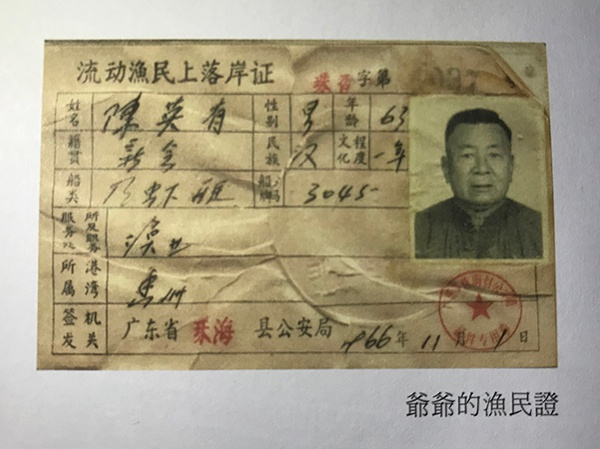 流动漁民上落岸证
珠香字第
姓名 陳英有 性别 男 年龄 63
籍貫 新会 民族 汉 文化程度 一年
船类 虾罟 船牌号码 3045
服务处所及职务 渔工
所属港湾
签发机关 广东省 珠海 县公安局 1966年11月1日
爺爺的漁民證